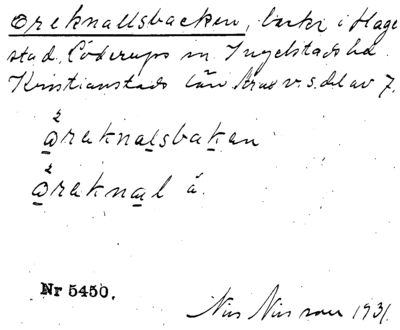 Oreknallsbacken, backe i Hage
stad, Löderups sn. Ingelstads hd.
Kristianstads län v. s. del av 7.
òreknalsbakan
òreknal å.
Nr 5450.
Nils Nilsson 1931.